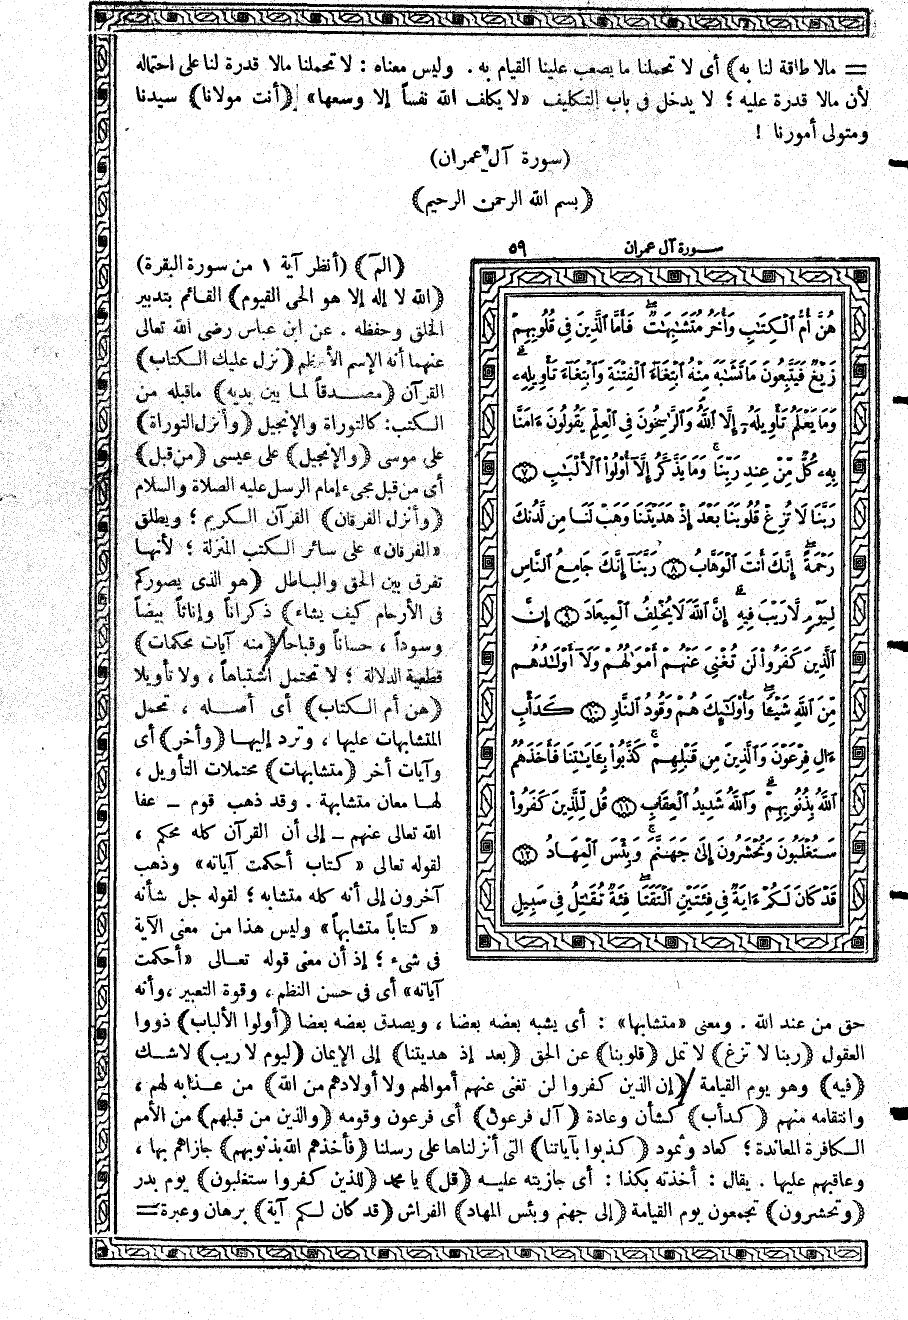 = مالا طاقة لنا به) أى لا تحملنا ما يصعب علينا القيام به . وليس معناه : لا تحملنا مالا قدرة لنا على احتماله
لأن مالا قدرة عليه ؛ لا يدخل فى باب التكليف «لا يكلف الله نفساً إلا وسعها» (أنت مولانا) سيدنا
ومتولى أمورنا !
(سورة آل عمران)
(بسم الله الرحمن الرحيم)
سورة آل عمران ٥٩
هُنَّ أُمُّ ٱلْكِتَٰبِ وَأُخَرُ مُتَشَٰبِهَٰتٌ فَأَمَّا ٱلَّذِينَ فِى قُلُوبِهِمْ
زَيْغٌ فَيَتَّبِعُونَ مَا تَشَٰبَهَ مِنْهُ ٱبْتِغَآءَ ٱلْفِتْنَةِ وَٱبْتِغَآءَ تَأْوِيلِهِۦ
وَمَا يَعْلَمُ تَأْوِيلَهُۥٓ إِلَّا ٱللَّهُ وَٱلرَّٰسِخُونَ فِى ٱلْعِلْمِ يَقُولُونَ ءَامَنَّا
بِهِۦ كُلٌّ مِّنْ عِندِ رَبِّنَا وَمَا يَذَّكَّرُ إِلَّآ أُو۟لُوا۟ ٱلْأَلْبَٰبِ ٧
رَبَّنَا لَا تُزِغْ قُلُوبَنَا بَعْدَ إِذْ هَدَيْتَنَا وَهَبْ لَنَا مِن لَّدُنكَ
رَحْمَةً إِنَّكَ أَنتَ ٱلْوَهَّابُ ٨ رَبَّنَآ إِنَّكَ جَامِعُ ٱلنَّاسِ
لِيَوْمٍ لَّا رَيْبَ فِيهِ إِنَّ ٱللَّهَ لَا يُخْلِفُ ٱلْمِيعَادَ ٩ إِنَّ
ٱلَّذِينَ كَفَرُوا۟ لَن تُغْنِىَ عَنْهُمْ أَمْوَٰلُهُمْ وَلَآ أَوْلَٰدُهُم
مِّنَ ٱللَّهِ شَيْـًٔا وَأُو۟لَٰٓئِكَ هُمْ وَقُودُ ٱلنَّارِ ١٠ كَدَأْبِ
ءَالِ فِرْعَوْنَ وَٱلَّذِينَ مِن قَبْلِهِمْ كَذَّبُوا۟ بِـَٔايَٰتِنَا فَأَخَذَهُمُ
ٱللَّهُ بِذُنُوبِهِمْ وَٱللَّهُ شَدِيدُ ٱلْعِقَابِ ١١ قُل لِّلَّذِينَ كَفَرُوا۟
سَتُغْلَبُونَ وَتُحْشَرُونَ إِلَىٰ جَهَنَّمَ وَبِئْسَ ٱلْمِهَادُ ١٢
قَدْ كَانَ لَكُمْ ءَايَةٌ فِى فِئَتَيْنِ ٱلْتَقَتَا فِئَةٌ تُقَٰتِلُ فِى سَبِيلِ
(الم) (أنظر آية ١ من سورة البقرة)
(الله لا إله إلا هو الحى القيوم) القائم بتدبير
الخلق وحفظه . عن ابن عباس رضى الله تعالى
عنهما أنه الإسم الأعظم (نزل عليك الكتاب)
القرآن (مصدقاً لما بين يديه) ماقبله من
الكتب: كالتوراة والإنجيل (وأنزل التوراة)
على موسى (والإنجيل) على عيسى (من قبل)
أى من قبل مجىء إمام الرسل عليه الصلاة والسلام
(وأنزل الفرقان) القرآن الكريم ؛ ويطلق
«الفرقان» على سائر الكتب المنزلة ؛ لأنها
تفرق بين الحق والباطل (هو الذى يصوركم
فى الأرحام كيف يشاء) ذكراناً وإناثاً بيضاً
وسوداً ، حساناً وقباحاً (منه آيات محكمات)
قطعية الدلالة ؛ لا تحتمل اشتباهاً ، ولا تأويلا
(هن أم الكتاب) أى أصله ، تحمل
المتشابهات عليها ، وترد إليها (وأخر) أى
وآيات أخر (متشابهات) محتملات التأويل ،
لها معان متشابهة . وقد ذهب قوم – عفا
الله تعالى عنهم – إلى أن القرآن كله محكم ،
لقوله تعالى «كتاب أحكمت آياته» وذهب
آخرون إلى أنه كله متشابه ؛ لقوله جل شأنه
«كتاباً متشابهاً» وليس هذا من معنى الآية
فى شىء ؛ إذ أن معنى قوله تعالى «أحكمت
آياته» أى فى حسن النظم ، وقوة التعبير ، وأنه
حق من عند الله . ومعنى «متشابها» : أى يشبه بعضه بعضا ، ويصدق بعضه بعضا (أولوا الألباب) ذووا
العقول (ربنا لا تزغ) لا تمل (قلوبنا) عن الحق (بعد إذ هديتنا) إلى الإيمان (ليوم لا ريب) لاشك
(فيه) وهو يوم القيامة (إن الذين كفروا لن تغنى عنهم أموالهم ولا أولادهم من الله) من عذابه لهم ،
وانتقامه منهم (كدأب) كشأن وعادة (آل فرعون) أى فرعون وقومه (والذين من قبلهم) من الأمم
الكافرة المعاندة ؛ كعاد وثمود (كذبوا بآياتنا) التى أنزلناها على رسلنا (فأخذهم الله بذنوبهم) جازاهم بها ،
وعاقبهم عليها . يقال : أخذته بكذا : أى جازيته عليه (قل) يا محمد (للذين كفروا ستغلبون) يوم بدر
(وتحشرون) تجمعون يوم القيامة (إلى جهنم وبئس المهاد) الفراش (قد كان لكم آية) برهان وعبرة =